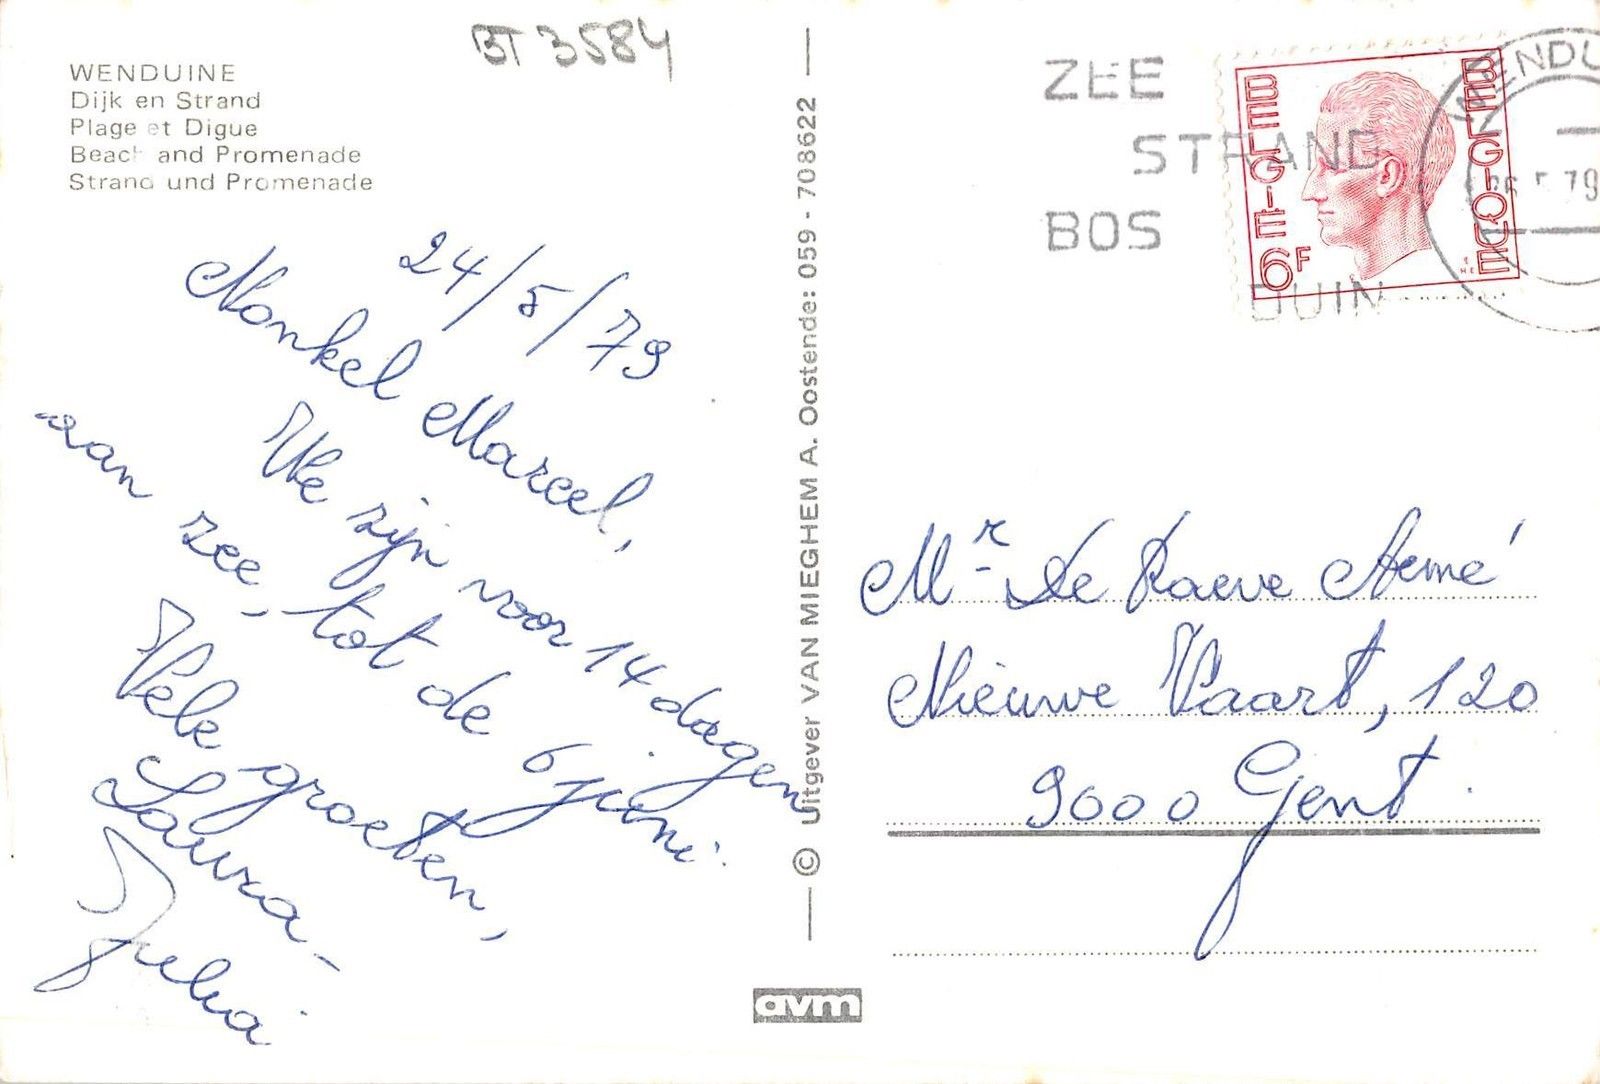 BT 3584
WENDUINE
Dijk en Strand
Plage et Digue
Beach and Promenade
Strand und Promenade
24/5/79
Nonkel Marcel,
We zijn voor 14 dagen
aan zee, tot de 6 juni.
Vele groeten,
Laura-
Julia
— © Uitgever VAN MIEGHEM A. Oostende: 059 - 708622 —
avm
ZEE
STRAND
BOS
DUIN
BELGIE
6F
BELGIQUE
WENDU
79
Mr De Raeve Aimé
Nieuwe Vaart, 120
9000 Gent.